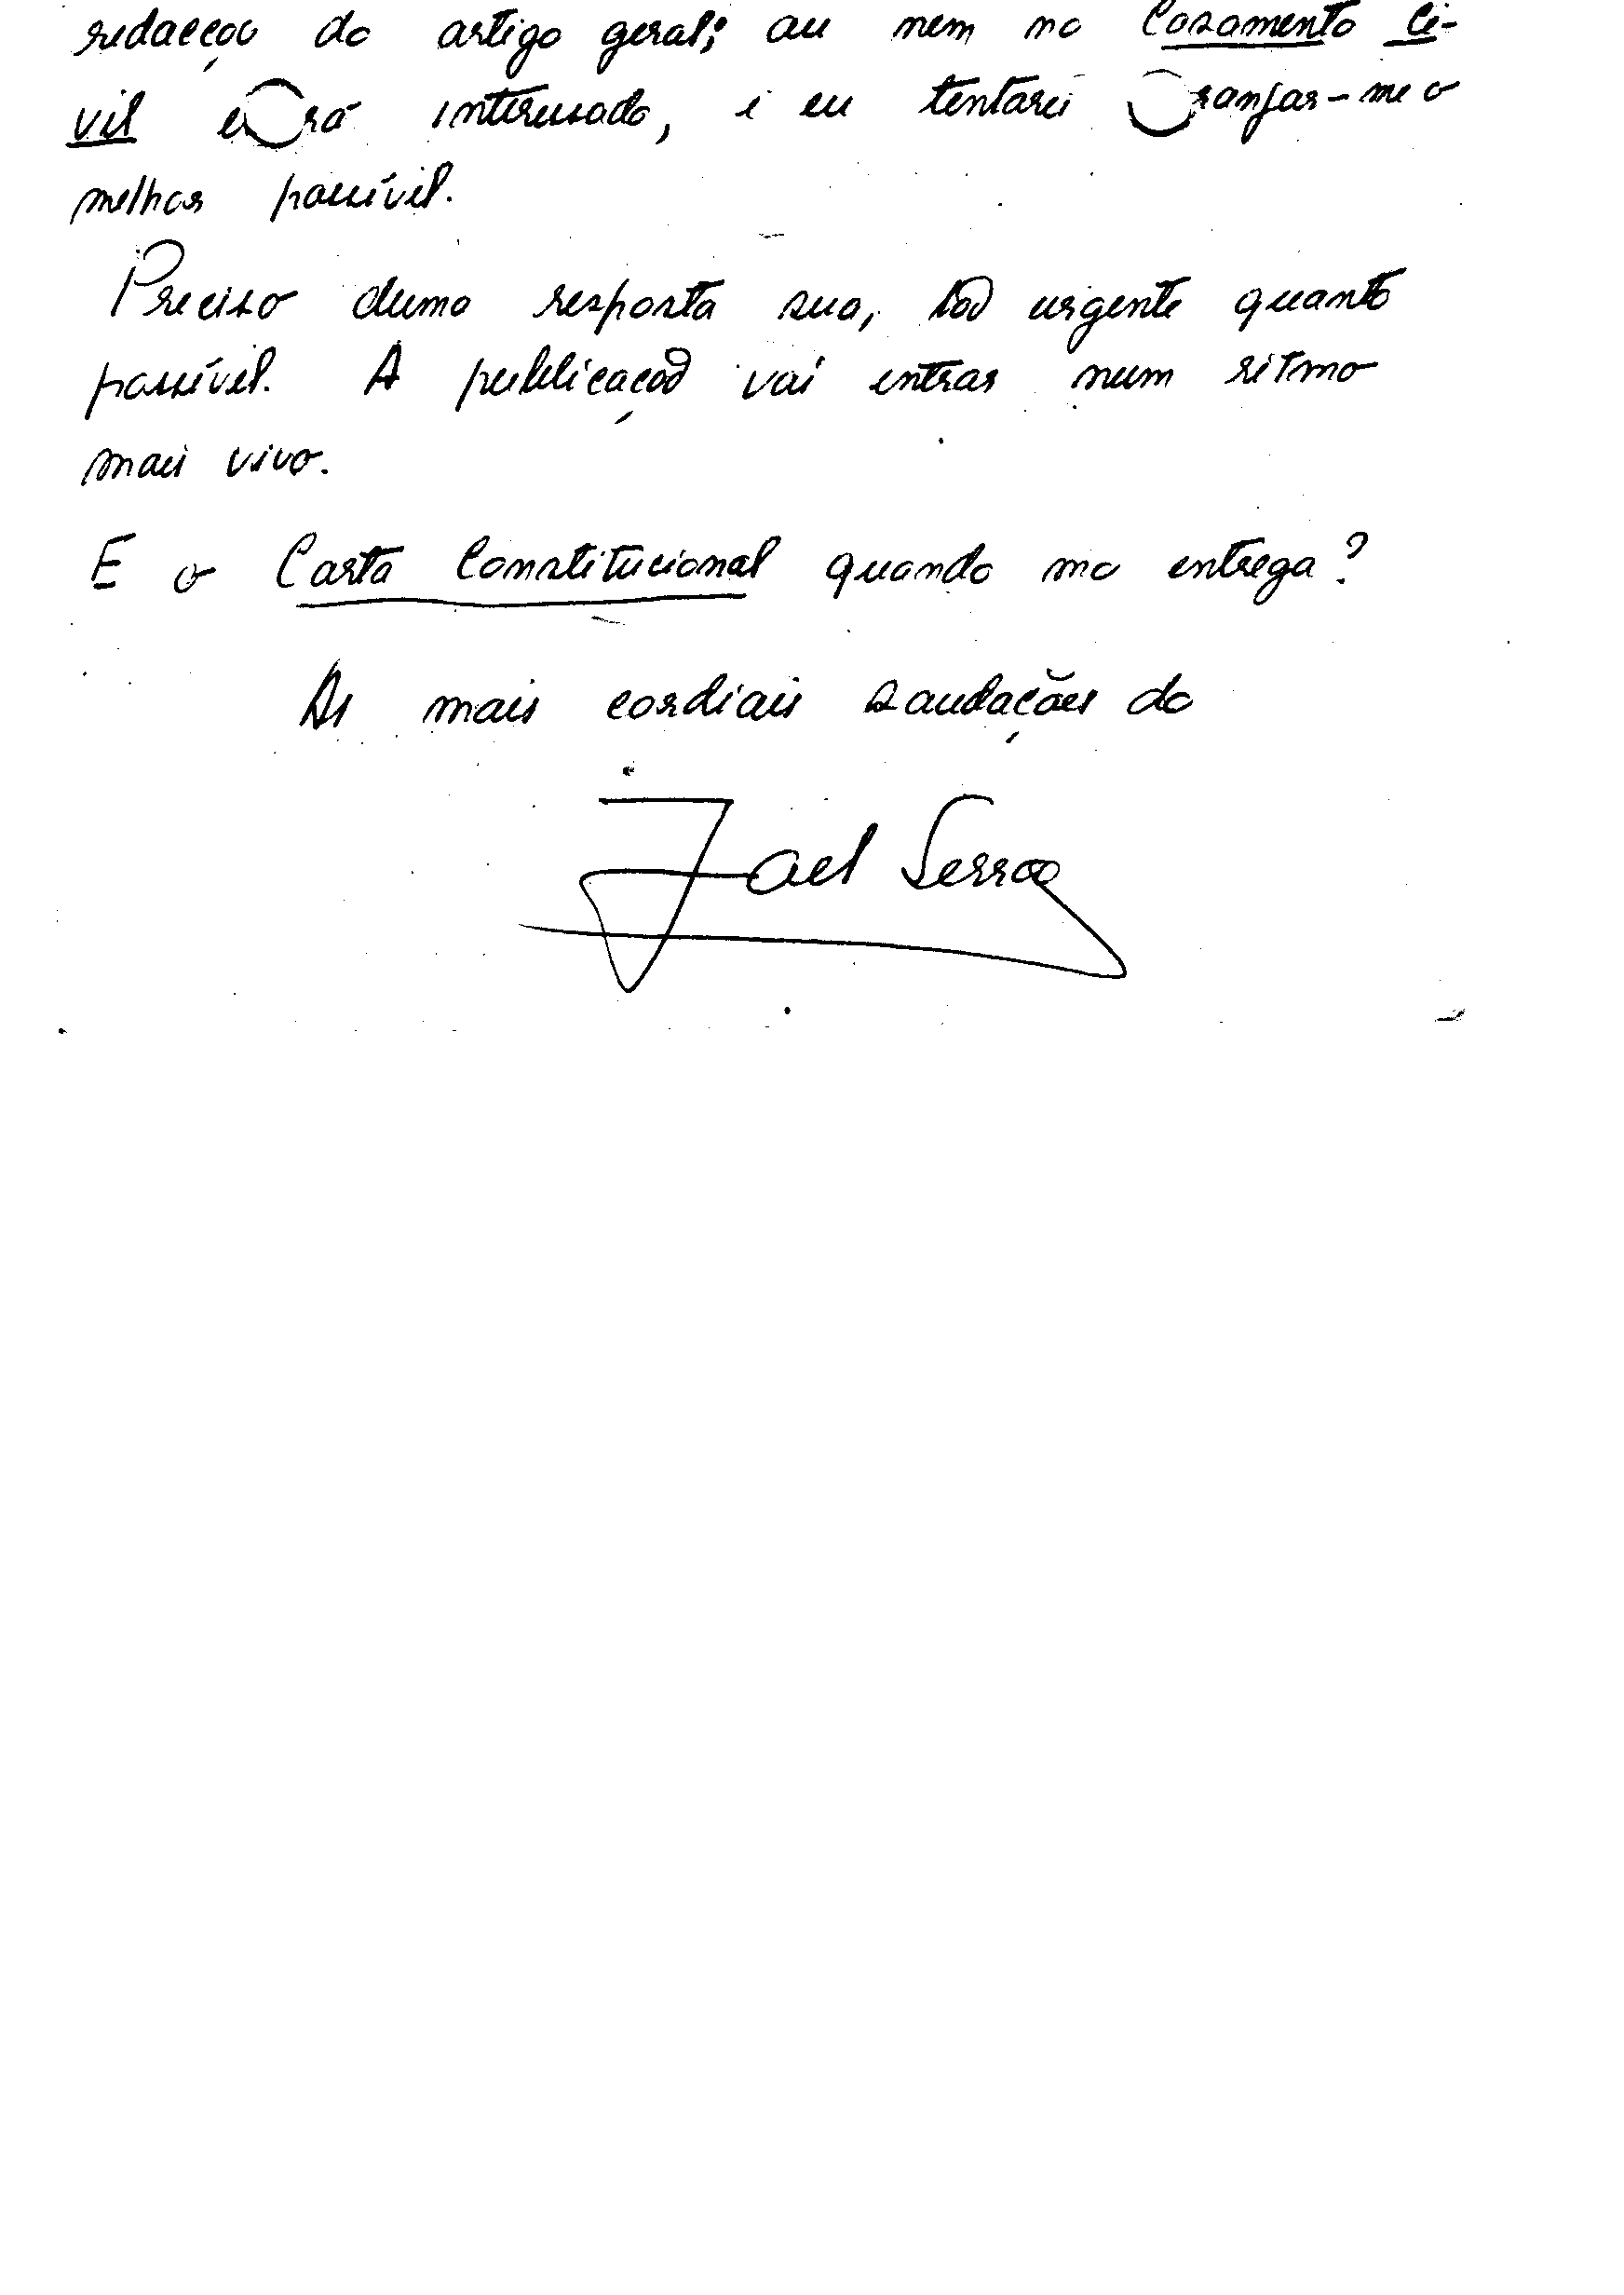 redacção do artigo geral; ou nem no Casamento Ci-
vil e rá interessado, e eu tentarei ranjar-me o
melhor possível.
Preciso duma resposta sua, tão urgente quanto
possível. A publicação vai entrar num ritmo
mais vivo.
E a Carta Constitucional quando ma entrega?
As mais cordiais saudações do
Joel Serrão